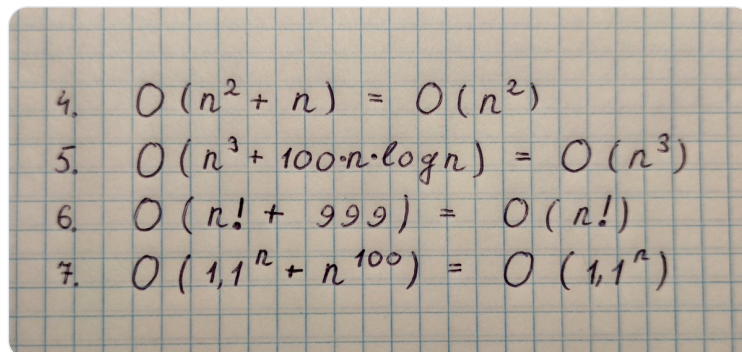 4. O(n² + n) = O(n²)
5. O(n³ + 100·n·logn) = O(n³)
6. O(n! + 999) = O(n!)
7. O(1,1ⁿ + n¹⁰⁰) = O(1,1ⁿ)